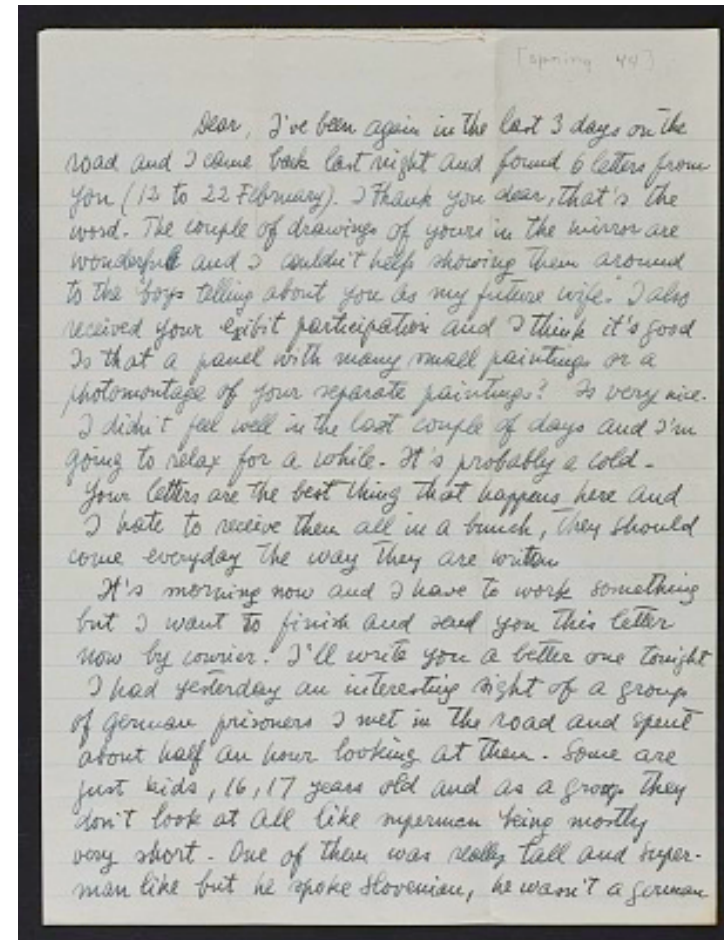 [Spring 44]
Dear, I've been again in the last 3 days on the
road and I came back last night and found 6 letters from
you (12 to 22 February). I thank you dear, that's the
word. The couple of drawings of yours in the mirror are
wonderful and I couldn't help showing them around
to the "boys telling about you as my future wife." I also
received your exibit participation and I think it's good
Is that a panel with many small paintings or a
photomontage of your separate paintings? Is very nice.
I didn't feel well in the last couple of days and I'm
going to relax for a while. It's probably a cold.
Your letters are the best thing that happens here and
I hate to receive them all in a bunch, they should
come everyday the way they are written
It's morning now and I have to work something
but I want to finish and send you this letter
now by courier. I'll write you a better one tonight
I had yesterday an interesting sight of a group
of german prisoners I met in the road and spent
about half an hour looking at them. Some are
just kids, 16, 17 years old and as a group they
don't look at all like supermen being mostly
very short. One of them was really tall and super-
man like but he spoke Slovenian, he wasn't a german